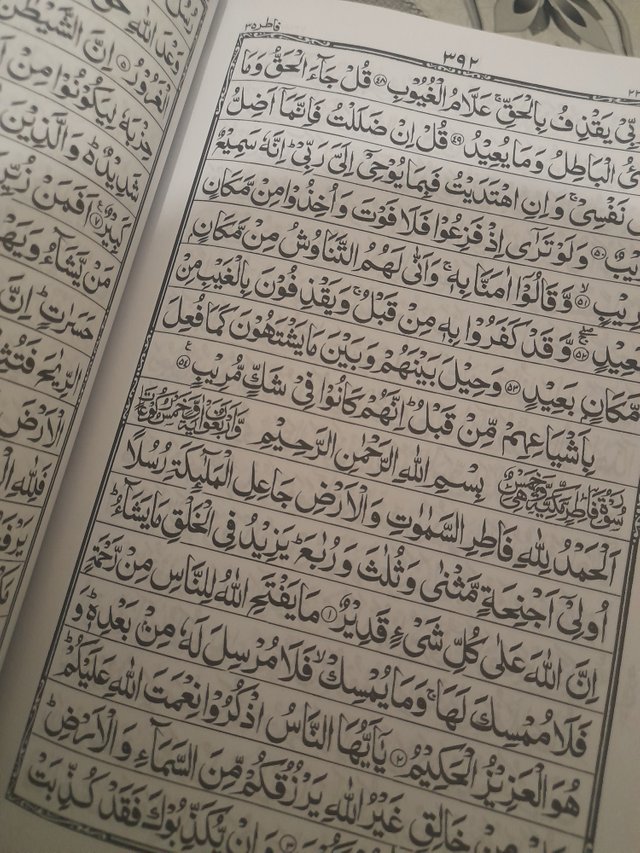 فاطر ٣٥
٣٩٢
بِّیْ یَقْذِفُ بِالْحَقِّ ۚ عَلَّامُ الْغُیُوْبِ ﴿۴۸﴾ قُلْ جَآءَ الْحَقُّ وَمَا
ئُ الْبَاطِلُ وَمَا یُعِیْدُ ﴿۴۹﴾ قُلْ اِنْ ضَلَلْتُ فَاِنَّمَاۤ اَضِلُّ
نَفْسِیْ ۚ وَاِنِ اهْتَدَیْتُ فَبِمَا یُوْحِیْۤ اِلَیَّ رَبِّیْ ؕ اِنَّهٗ سَمِیْعٌ
یْبٌ ﴿۵۰﴾ وَلَوْ تَرٰۤی اِذْ فَزِعُوْا فَلَا فَوْتَ وَاُخِذُوْا مِنْ مَّكَانٍ
رِیْبٍ ﴿۵۱﴾ وَّقَالُوْۤا اٰمَنَّا بِهٖ ۚ وَاَنّٰی لَهُمُ التَّنَاوُشُ مِنْ مَّكَانٍ
بَعِیْدٍ ﴿۵۲﴾ وَّقَدْ كَفَرُوْا بِهٖ مِنْ قَبْلُ ۚ وَیَقْذِفُوْنَ بِالْغَیْبِ مِنْ
مَّكَانٍ بَعِیْدٍ ﴿۵۳﴾ وَحِیْلَ بَیْنَهُمْ وَبَیْنَ مَا یَشْتَهُوْنَ كَمَا فُعِلَ
بِاَشْیَاعِهِمْ مِّنْ قَبْلُ ؕ اِنَّهُمْ كَانُوْا فِیْ شَكٍّ مُّرِیْبٍ ﴿۵۴﴾
بِسْمِ اللّٰهِ الرَّحْمٰنِ الرَّحِیْمِ
اَلْحَمْدُ لِلّٰهِ فَاطِرِ السَّمٰوٰتِ وَالْاَرْضِ جَاعِلِ الْمَلٰٓئِكَةِ رُسُلًا
اُولِیْۤ اَجْنِحَةٍ مَّثْنٰی وَثُلٰثَ وَرُبٰعَ ؕ یَزِیْدُ فِی الْخَلْقِ مَا یَشَآءُ ؕ
اِنَّ اللّٰهَ عَلٰی كُلِّ شَیْءٍ قَدِیْرٌ ﴿۱﴾ مَا یَفْتَحِ اللّٰهُ لِلنَّاسِ مِنْ رَّحْمَةٍ
فَلَا مُمْسِكَ لَهَا ۚ وَمَا یُمْسِكْ ۙ فَلَا مُرْسِلَ لَهٗ مِنْۢ بَعْدِهٖ ؕ وَ
هُوَ الْعَزِیْزُ الْحَكِیْمُ ﴿۲﴾ یٰۤاَیُّهَا النَّاسُ اذْكُرُوْا نِعْمَتَ اللّٰهِ عَلَیْكُمْ ؕ
مِنْ خَالِقٍ غَیْرُ اللّٰهِ یَرْزُقُكُمْ مِّنَ السَّمَآءِ وَالْاَرْضِ ؕ
﴿۳﴾ وَاِنْ یُّكَذِّبُوْكَ فَقَدْ كُذِّبَتْ
وَعْدَ اللّٰهِ حَقٌّ
الْغَرُوْرُ ﴿۵﴾ اِنَّ الشَّیْطٰنَ
حِزْبَهٗ لِیَكُوْنُوْا مِنْ
شَدِیْدٌ ؕ وَالَّذِیْنَ
كَبِیْرٌ ﴿۷﴾ اَفَمَنْ زُیِّنَ
مَنْ یَّشَآءُ وَیَهْ
حَسَرٰتٍ ؕ اِنَّ
الرِّیٰحَ فَتُثِ
الْاَرْضَ
فَلِلّٰهِ الْ